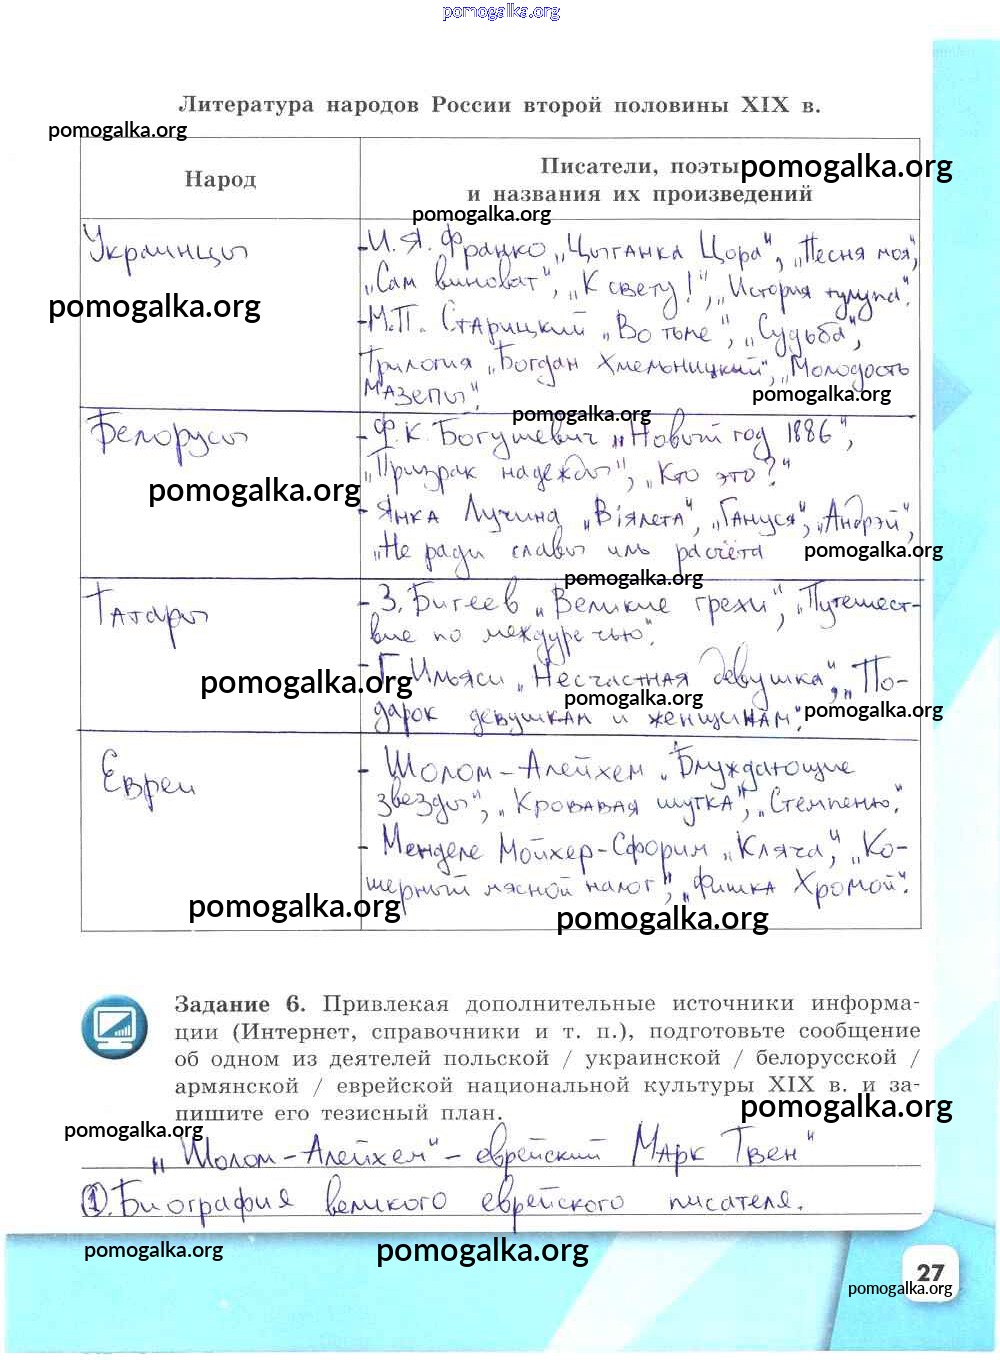 pomogalka.org
Литература народов России второй половины XIX в.
pomogalka.org
Народ
Писатели, поэты
pomogalka.org
и названия их произведений
pomogalka.org
Украинцы
-И. Я. Франко „Цыганка Цора", „Песня моя",
„Сам виноват", „К свету!", „История тулупа".
pomogalka.org
-М.П. Старицкий „Во тьме", „Судьба",
трилогия „Богдан Хмельницкий", „Молодость
Мазепы".
pomogalka.org
pomogalka.org
Белорусы
-Ф.К. Богушевич „Новый год 1886",
„Призрак надежды", „Кто это?"
pomogalka.org
-Янка Лучина „Вiялета", „Гануся", „Андрэй",
„Не ради славы иль расчёта
pomogalka.org
pomogalka.org
Татары
-З. Бигеев „Великие грехи", „Путешест-
вие по междуречью".
-Г. Ильяси „Несчастная девушка", „По-
pomogalka.org
pomogalka.org
дарок девушкам и женщинам".
pomogalka.org
Евреи
- Шолом-Алейхем „Блуждающие
звезды", „Кровавая шутка", „Стемпеню".
- Менделе Мойхер-Сфорим „Кляча", „Ко-
шерный мясной налог", „Фишка Хромой".
pomogalka.org
pomogalka.org
Задание 6. Привлекая дополнительные источники информа-
ции (Интернет, справочники и т. п.), подготовьте сообщение
об одном из деятелей польской / украинской / белорусской /
армянской / еврейской национальной культуры XIX в. и за-
пишите его тезисный план.
pomogalka.org
pomogalka.org
„Шолом-Алейхем" - еврейский Марк Твен"
1. Биография великого еврейского писателя.
pomogalka.org
pomogalka.org
27
pomogalka.org